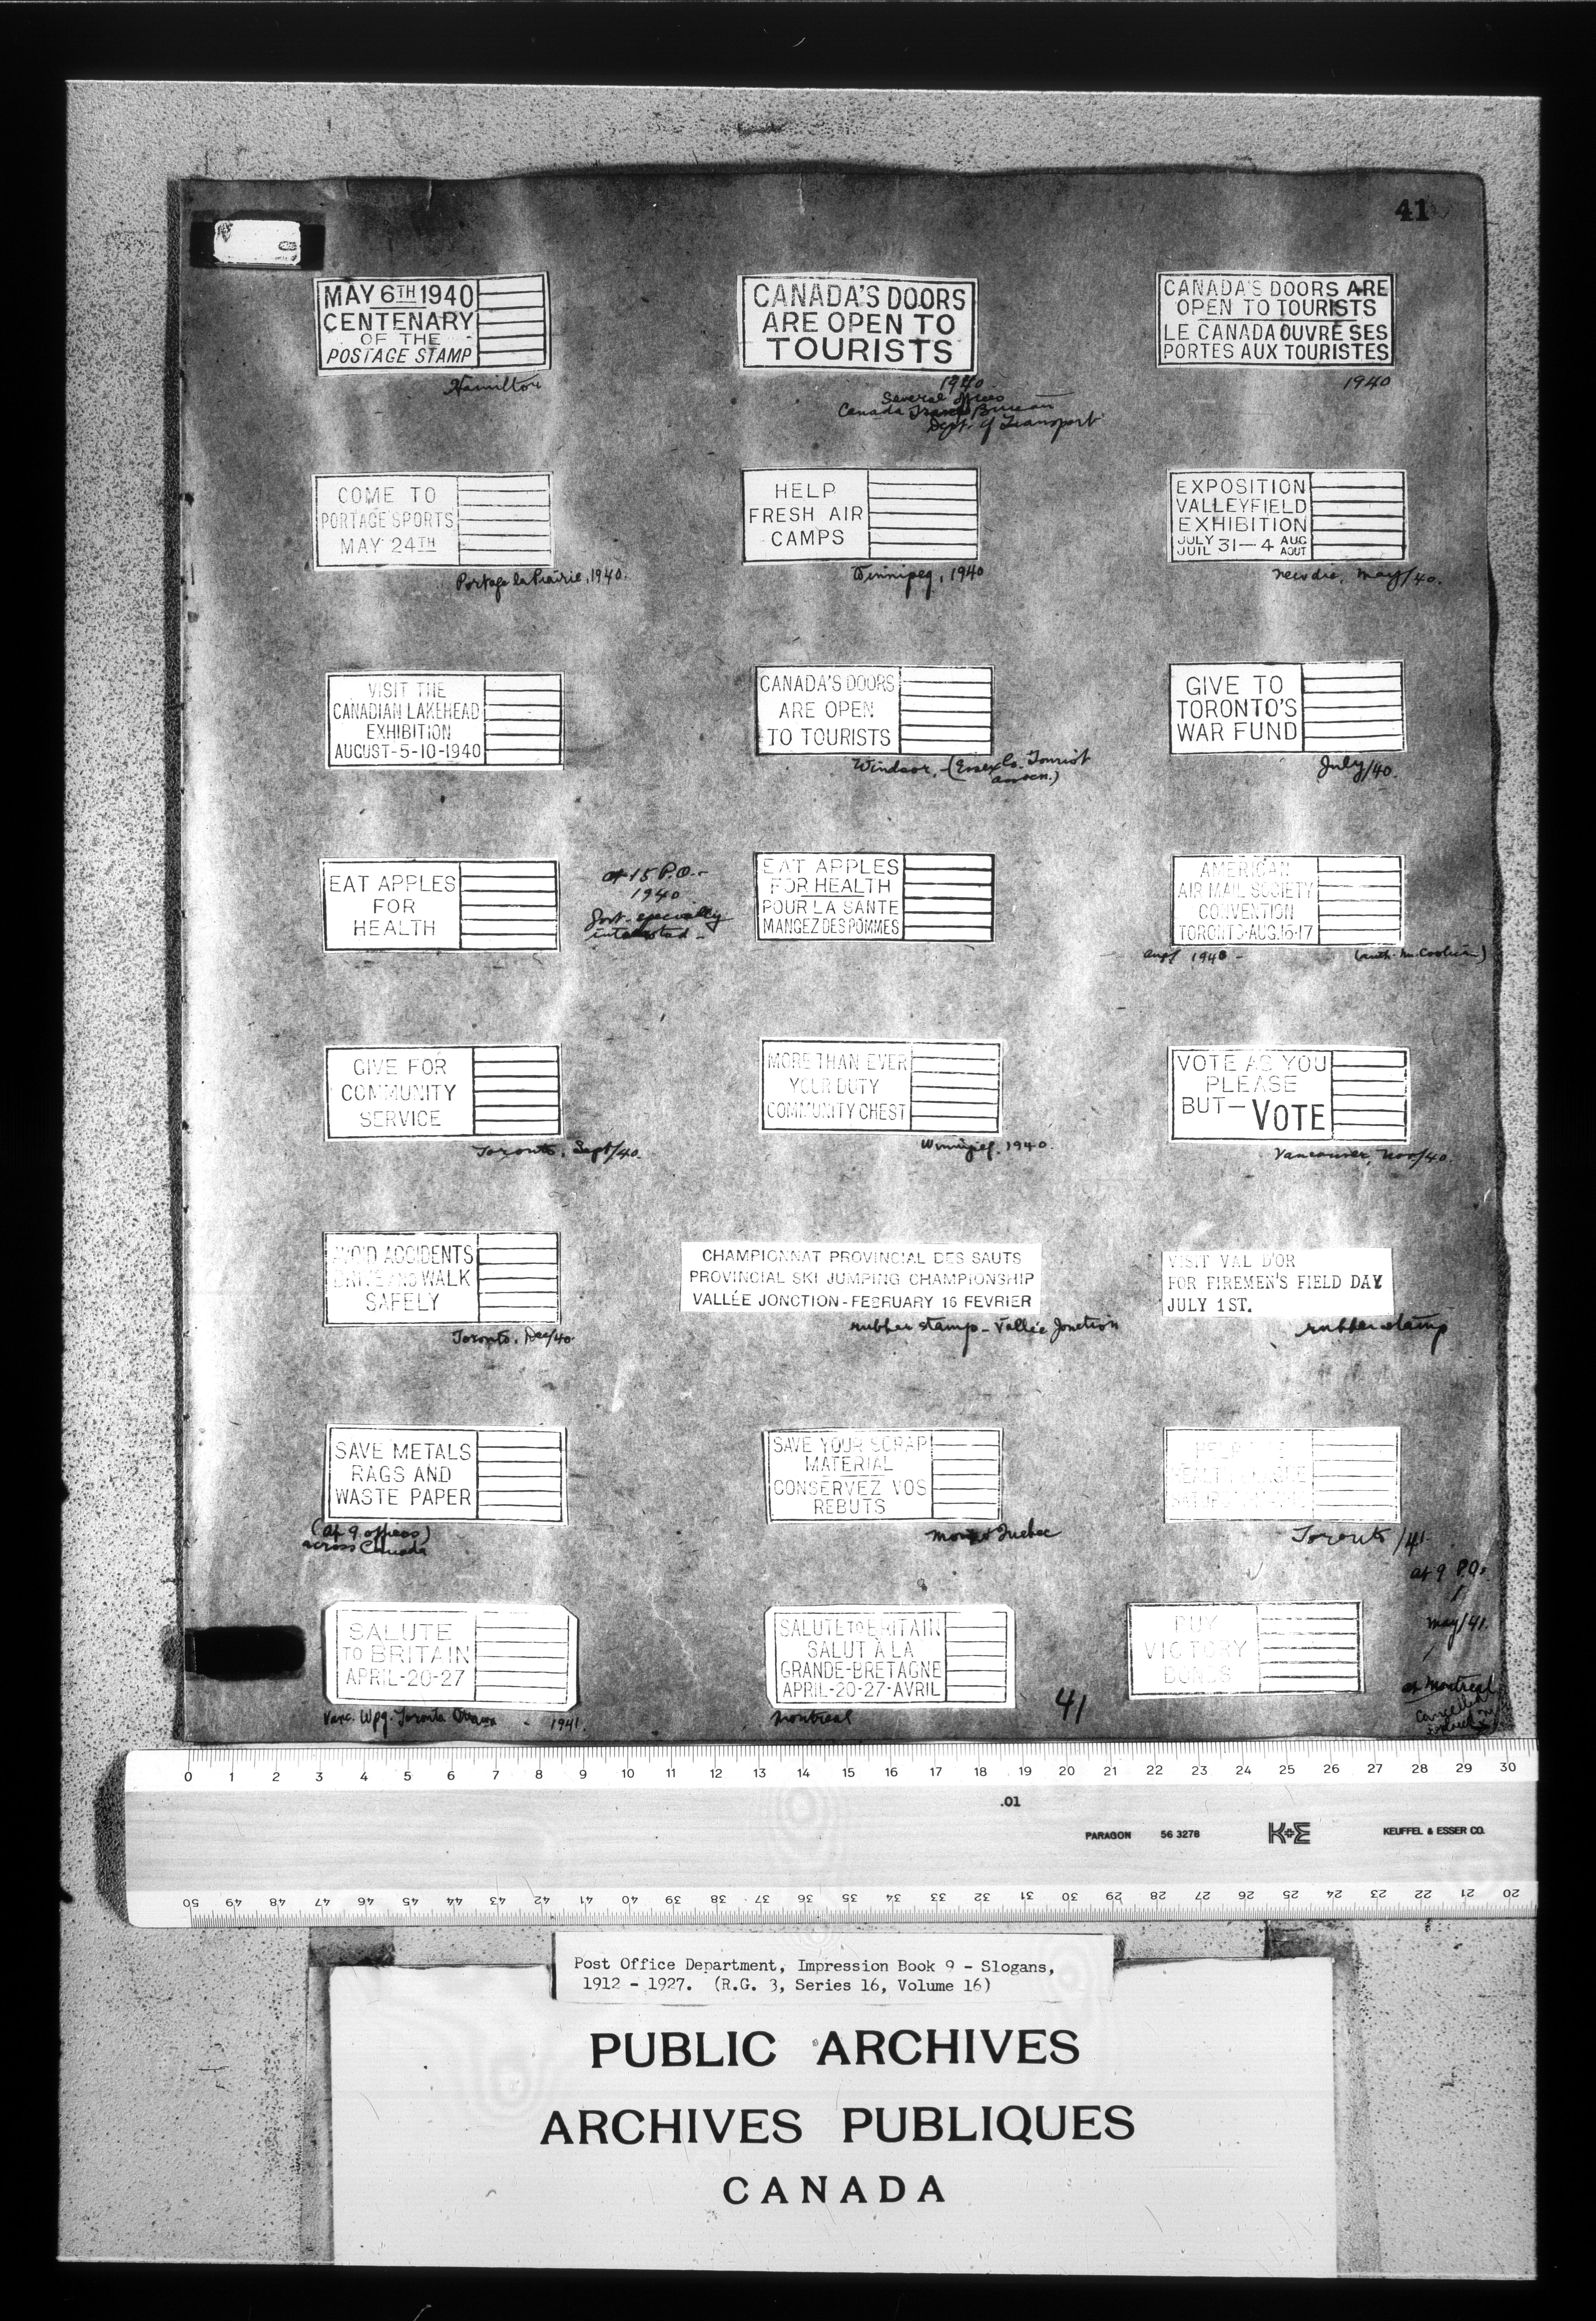 41
MAY 6TH 1940
CENTENARY
OF THE
POSTAGE STAMP
Hamilton
CANADA'S DOORS
ARE OPEN TO
TOURISTS
1940
Several offices
Canada Travel Bureau
Dept. of Transport
CANADA'S DOORS ARE
OPEN TO TOURISTS
LE CANADA OUVRE SES
PORTES AUX TOURISTES
1940
COME TO
PORTAGE SPORTS
MAY 24TH
Portage la Prairie, 1940.
HELP
FRESH AIR
CAMPS
Winnipeg, 1940
EXPOSITION
VALLEYFIELD
EXHIBITION
JULY 31-4 AUG
JUIL AOUT
New die, May/40.
VISIT THE
CANADIAN LAKEHEAD
EXHIBITION
AUGUST-5-10-1940
CANADA'S DOORS
ARE OPEN
TO TOURISTS
Windsor, - (Essex Co. Tourist
assocn.)
GIVE TO
TORONTO'S
WAR FUND
July/40.
EAT APPLES
FOR
HEALTH
at 15 P.O.-
1940
Govt. specially
interested -
EAT APPLES
FOR HEALTH
POUR LA SANTE
MANGEZ DES POMMES
AMERICAN
AIR MAIL SOCIETY
CONVENTION
TORONTO-AUG.16-17
Aug/ 1940 -
GIVE FOR
COMMUNITY
SERVICE
Toronto, Sept/40.
MORE THAN EVER
YOUR DUTY
COMMUNITY CHEST
Winnipeg, 1940.
VOTE AS YOU
PLEASE
BUT-VOTE
Vancouver, Nov/40.
AVOID ACCIDENTS
DRIVE AND WALK
SAFELY
Toronto, Dec/40
CHAMPIONNAT PROVINCIAL DES SAUTS
PROVINCIAL SKI JUMPING CHAMPIONSHIP
VALLÉE JONCTION-FEBRUARY 16 FEVRIER
rubber stamp - Vallée Jonction
VISIT VAL D'OR
FOR FIREMEN'S FIELD DAY
JULY 1ST.
rubber stamp
SAVE METALS
RAGS AND
WASTE PAPER
(at 9 offices)
across Canada
SAVE YOUR SCRAP
MATERIAL
CONSERVEZ VOS
REBUTS
Quebec
HELP
HEALTH LEAGUE
Toronto/41.
at 9 P.O.
May/41.
at Montreal
SALUTE
TO BRITAIN
APRIL-20-27
Vanc. Wpg. Toronto Ottawa - 1941.
SALUTE TO BRITAIN
SALUT À LA
GRANDE-BRETAGNE
APRIL-20-27-AVRIL
Montreal
BUY
VICTORY
BONDS
41
0 1 2 3 4 5 6 7 8 9 10 11 12 13 14 15 16 17 18 19 20 21 22 23 24 25 26 27 28 29 30
.01
PARAGON 56 3278 K+E KEUFFEL & ESSER CO.
50 49 48 47 46 45 44 43 42 41 40 39 38 37 36 35 34 33 32 31 30 29 28 27 26 25 24 23 22 21 20
Post Office Department, Impression Book 9 - Slogans,
1912 - 1927. (R.G. 3, Series 16, Volume 16)
PUBLIC ARCHIVES
ARCHIVES PUBLIQUES
CANADA